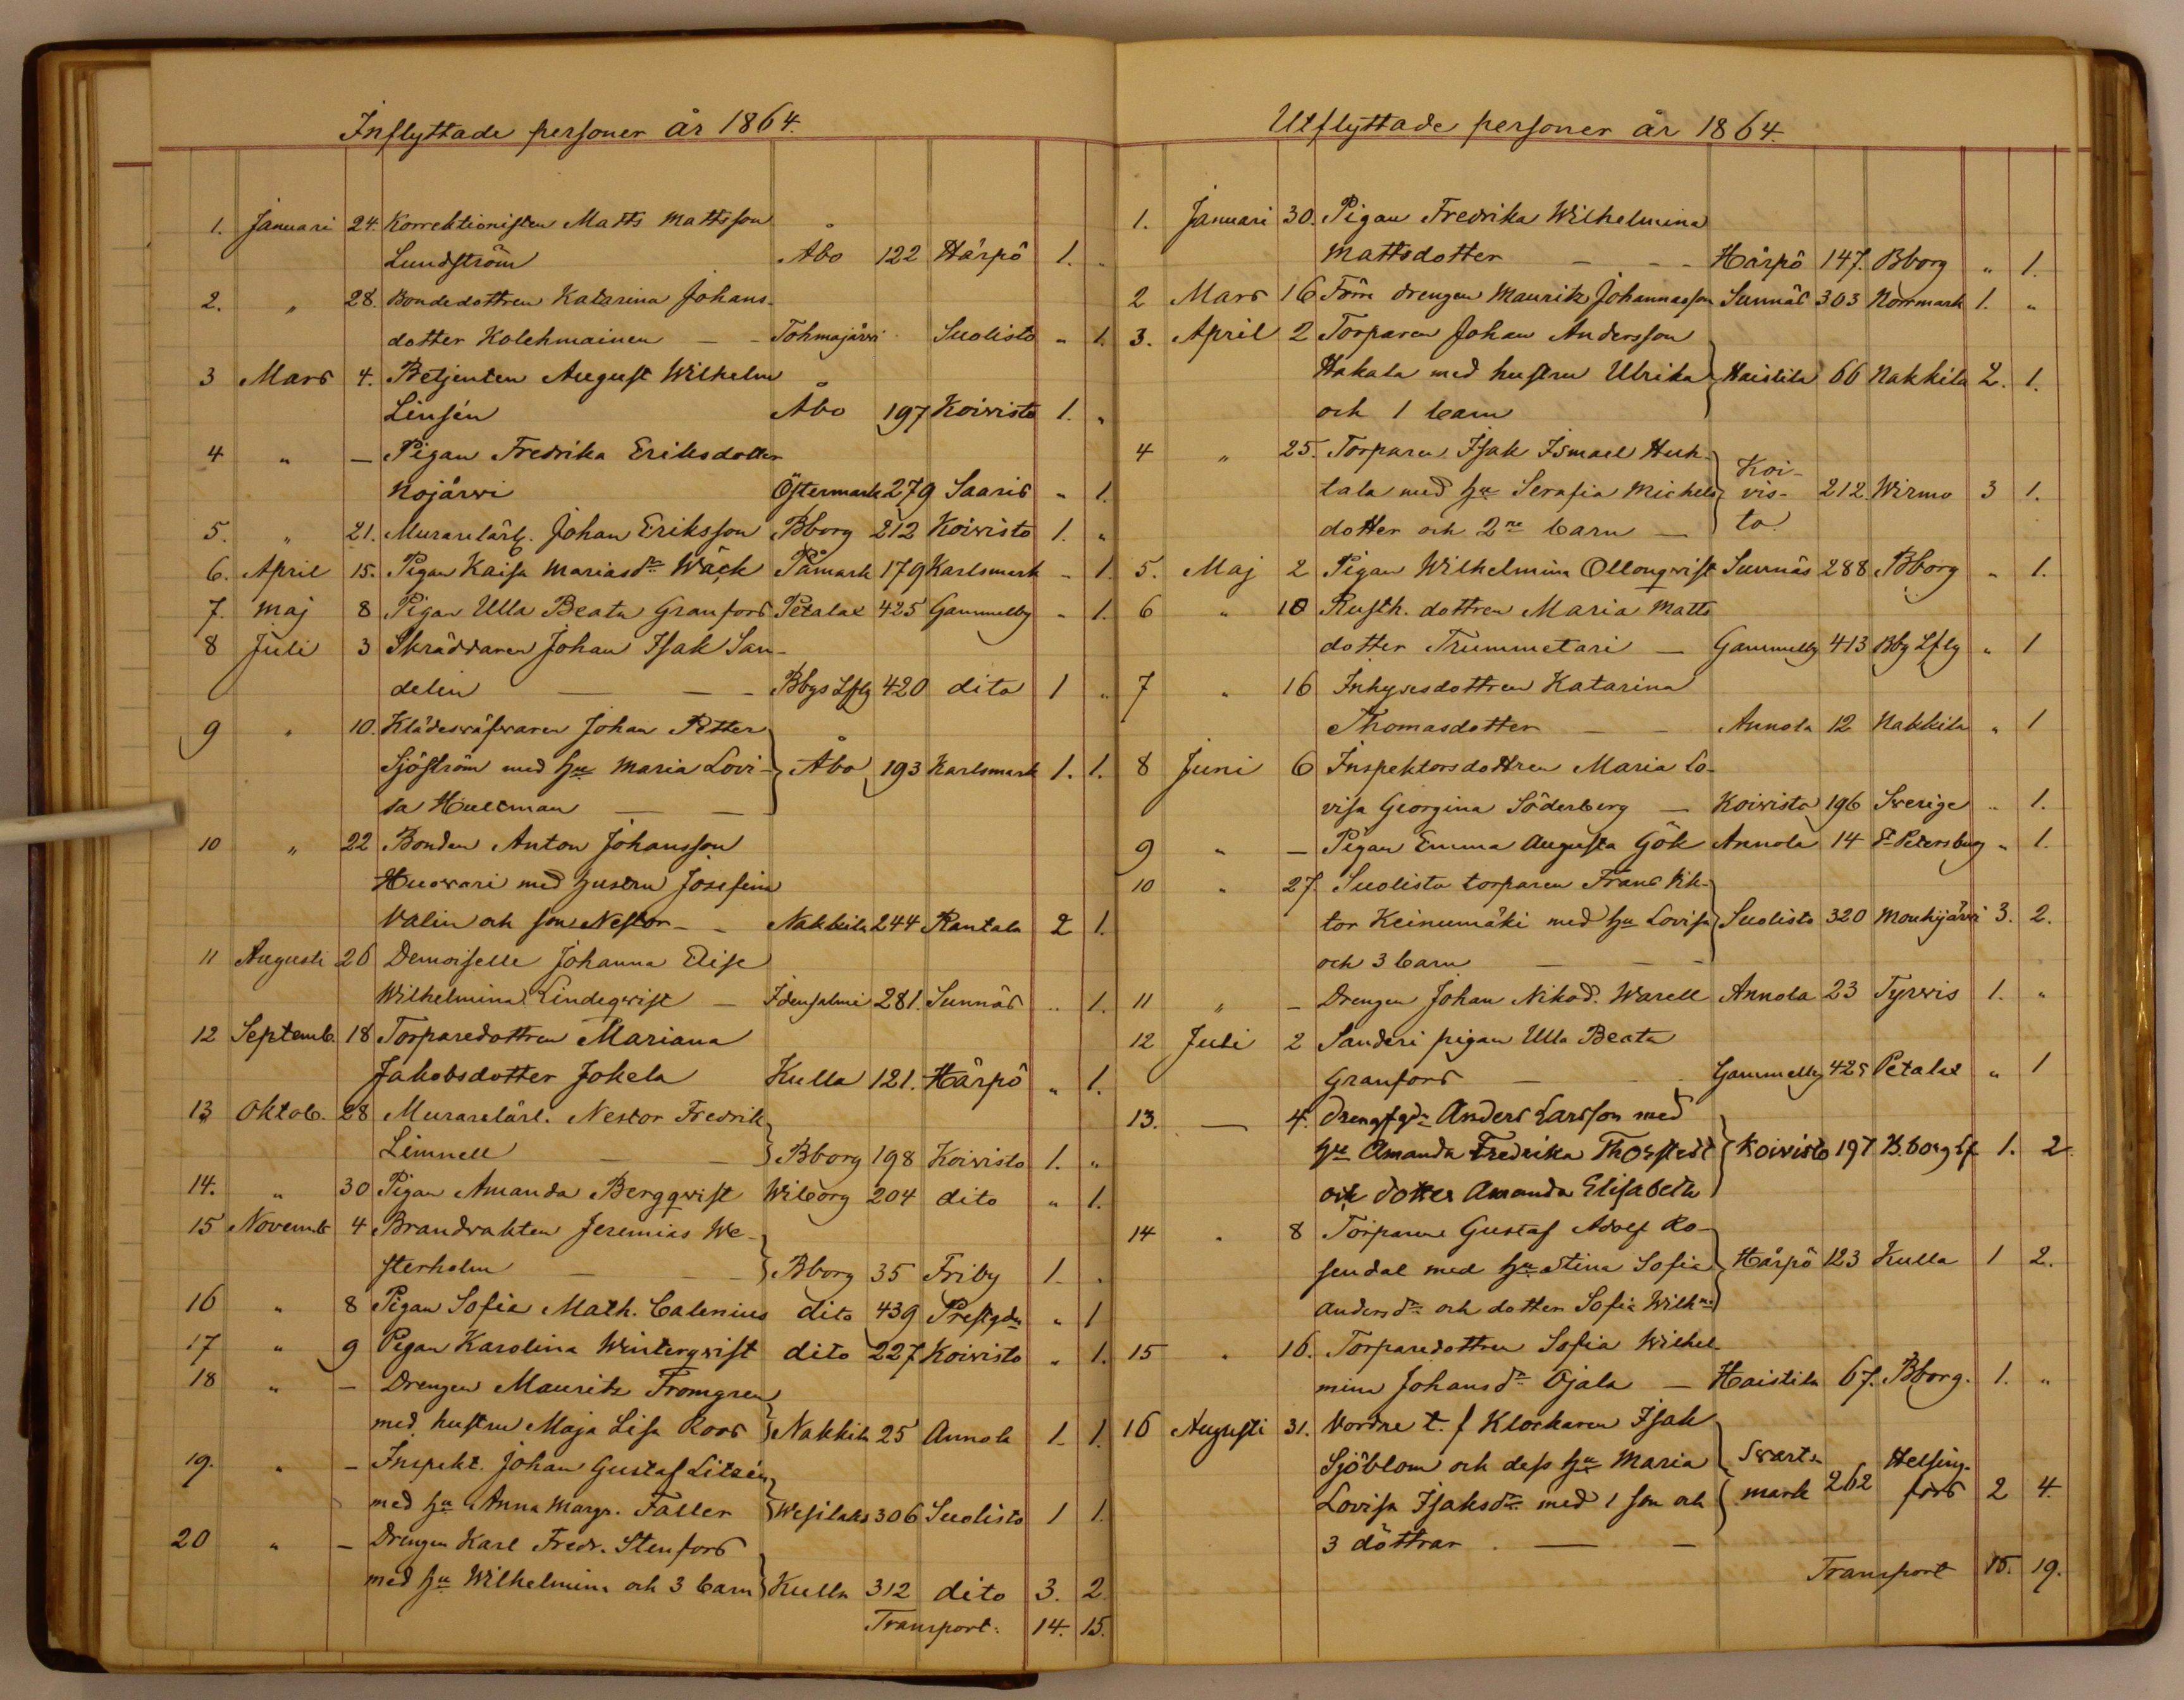 Inflyttade personer år 1864.
1. Januari 24. Korrektionisten Matts Mattsson
Lundström Åbo 122 Härpö 1. "
2. " 28. Bondedottren Katarina Johans-
dotter Kolehmainen — - Tohmajärvi Suolisto " 1.
3 Mars 4. Betjenten August Wilhelm
Linsén Åbo 197 Koivisto 1. "
4 " — Pigan Fredrika Eriksdotter
Nojärwi Östermark 279 Saaris " 1.
5. " 21. Murarelärl. Johan Eriksson Bborg 212 Koivisto 1. "
6. April 15. Pigan Kaisa Mariasdr Wäck Påmark 179 Karlsmark " 1.
7. Maj 8 Pigan Ulla Beata Granfors Petalax 425 Gammelby " 1.
8 Juli 3 Skräddaren Johan Isak San-
delin — — - Bbgs Lfg 420 dito 1 "
9 " 10. Klädeswäfwaren Johan Petter
Sjöström med hu Maria Lovi- Åbo 193 Karlsmark 1. 1.
sa Hultman — —
10 " 22 Bonden Anton Johansson
Huovari med hustru Josefina
Valin och son Nestor - - Nakkila 244 Rantala 2 1.
11 Augusti 26 Demoiselle Johanna Elise
Wilhelmina Lindeqvist — Idensalmi 281. Sunnäs " 1.
12 Septemb. 18 Torparedottren Mariana
Jakobsdotter Jokela Kulla 121. Härpö " 1.
13 Oktob. 28 Murarelärl. Nestor Fredrik
Limnell — — Bborg 198 Koivisto 1. "
14. " 30 Pigan Amanda Bergqvist Wiborg 204 dito " 1.
15 Novemb. 4 Brandvakten Jeremias We-
sterholm — - Bborg 35 Friby 1. "
16 " 8 Pigan Sofia Math. Calenius dito 439 Prestgdn " 1
17 " 9 Pigan Karolina Winterqvist dito 227 Koivisto " 1.
18 " — Drengen Mauritz Fromgren
med hustru Maja Lisa Roos Nakkila 25 Annola 1. 1.
19. " — Inspekt. Johan Gustaf Litzén
med hu Anna Margr. Faller Wesilaks 306 Suolisto 1 1.
20 " — Drengen Karl Fredr. Stenfors
med hu Wilhelmina och 3 barn Kulla 312 dito 3. 2.
Transport: 14. 15.
Utflyttade personer år 1864.
1. Januari 30. Pigan Fredrika Wilhelmina
Mattsdotter — - - Härpö 147. Bborg " 1.
2 Mars 16 Förre drengen Mauritz Johannasson Sunnäs 303 Norrmark 1. "
3. April 2 Torparen Johan Andersson
Hakala med hustru Ulrika Haistila 66 Nakkila 2. 1.
och 1 barn
4 " 25. Torparen Isak Ismael Huh- Koi-
tala med hu Serafia Michels vis- 212. Wirmo 3 1.
dotter och 2ne barn — to
5. Maj 2 Pigan Wilhelmina Ollonqvist Sunnäs 288 Bborg " 1.
6 " 10 Rusth. dottren Maria Matts
dotter Trummetari — Gammelby 413 Bbg Lfg " 1
7 " 16 Inhysesdottren Katarina
Thomasdotter — - Annola 12 Nakkila " 1
8 Juni 6 Inspektorsdottren Maria Lo-
visa Georgina Söderberg — Koivisto 196 Sverige " 1.
9 " — Pigan Emma Augusta Gök Annola 14 St Petersburg " 1.
10 " 27 Suolisto torparen Frans Vik-
tor Keinumäki med hu Lovisa Suolisto 320 Mouhijärvi 3. 2.
och 3 barn — - -
11 " — Drengen Johan Nikod. Warell Annola 23 Tyrvis 1. "
12 Juli 2 Sanderi pigan Ulla Beata
Granfors — - Gammelby 425 Petalax " 1
13. — 4. Anders Larsson med
hu Amanda Fredrika Thorstedt Koivisto 197 B.borg Lf 1. 2.
och dotter Amanda Elisabeth
14 " 8 Torparen Gustaf Adolf Ro-
sendal med hu Stina Sofia Härpö 123 Kulla 1 2.
Andersdr och dotter Sofia Wilhna
15 " 16. Torparedottren Sofia Wilhel-
mina Johansdr Ojala — Haistila 67. Bborg. 1. "
16 Augusti 31. Vordne t. f Klockaren Isak
Sjöblom och dess hu Maria Swarts Helsing-
Lovisa Isaksdr med 1 son och mark 262 fors 2 4.
3 döttrar . — —
Transport 15. 19.